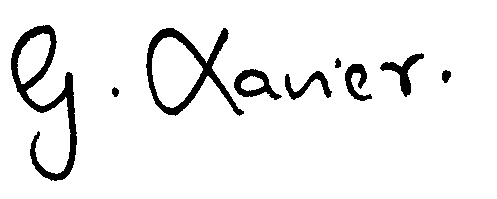 G. Xavier.